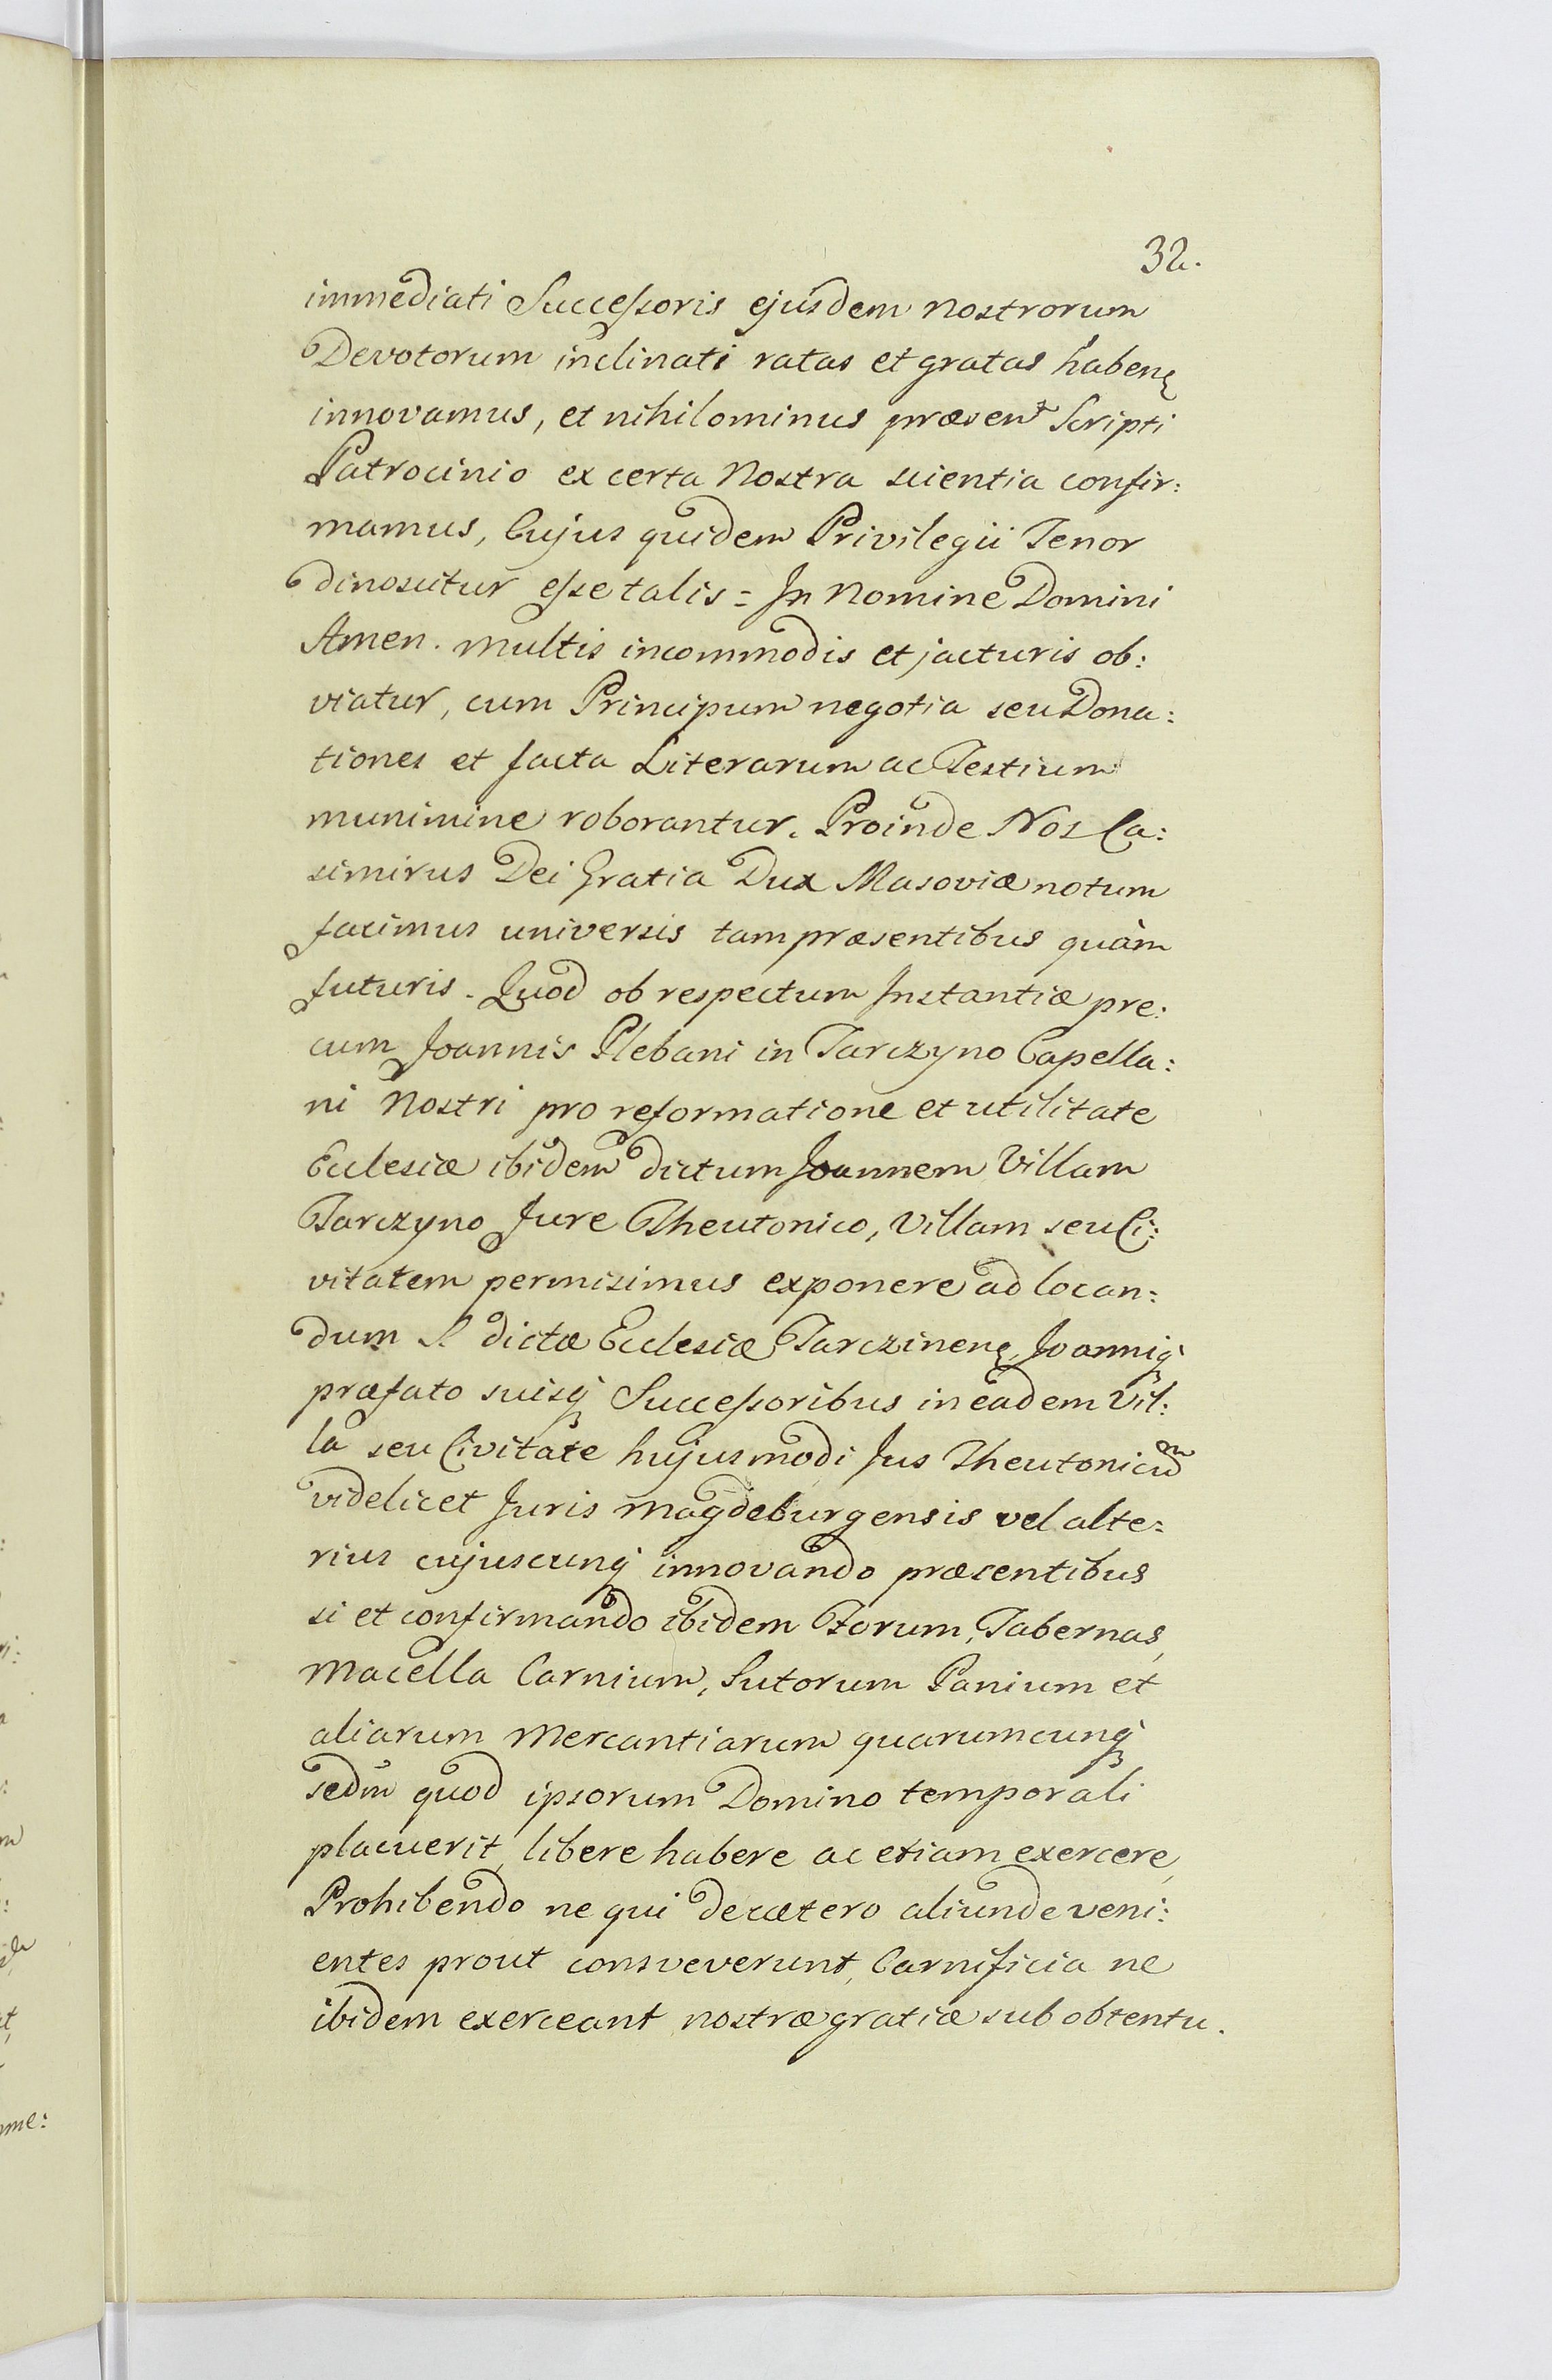 32.
immediati Successoris ejusdem nostrorum
Devotorum inclinati ratas et gratas habenę
innovamus, et nihilominus præsent Scripti
Patrocinio ex certa Nostra scientia confir:
mamus, Cujus quidem Privilegii Tenor
dinoscitur esse talis = In Nomine Domini
Amen. Multis incommodis et jacturis ob:
viatur, cum Principum negotia seu Dona:
tiones et facta Literarum ac Testium
munimine roborantur. Proinde Nos Ca:
simirus Dei Gratia Dux Masoviæ notum
facimus universis tam præsentibus quàm
futuris. Quod ob respectum Instantiæ pre:
cum Joannis Plebani in Tarczyno Capella:
ni Nostri pro reformatione et utilitate
Ecclesiæ ibidem dictum Joannem Villam
Tarczyno Jure Theutonico, Villam seu Ci:
vitatem permisimus exponere ad locan:
dum S dictæ Ecclesiæ Tarczinenę, Joanniq
præfato suisq Successoribus in eadem Vil:
la seu Civitate hujusmodi Jus Theutonicum
videlicet Juris Magdeburgensis vel alte=
rius cujuscunq innovando præsentibus
si et confirmando ibidem Forum, Tabernas,
Macella Carnium, Sutorum Panium et
aliarum Mercantiarum quarumcunq
sedm quod ipsorum Domino temporali
placuerit, libere habere ac etiam exercere,
Prohibendo ne qui decætero aliunde veni:
entes prout consveverunt, Carnificia ne
ibidem exerceant nostræ gratiæ sub obtentu.